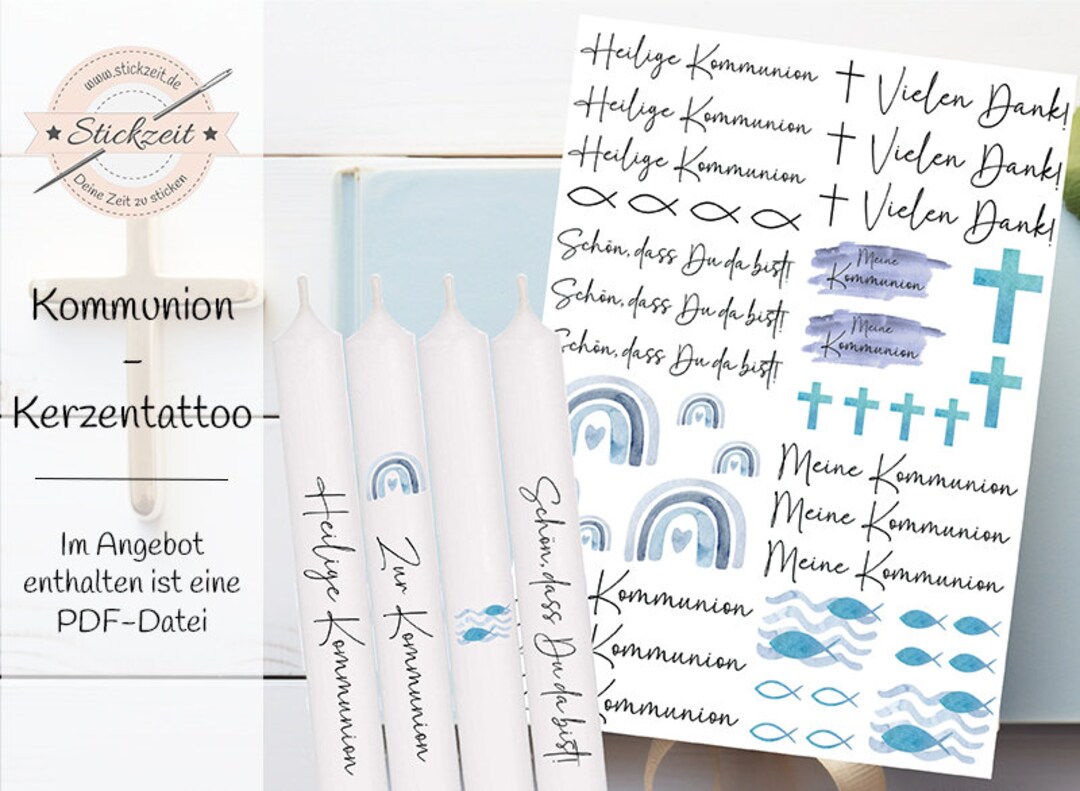 www.stickzeit.de
Stickzeit
Deine Zeit zu sticken
Kommunion
-
Kerzentattoo
Im Angebot
enthalten ist eine
PDF-Datei
Heilige Kommunion
Zur Kommunion
Schön, dass Du da bist!
Heilige Kommunion
Heilige Kommunion
Heilige Kommunion
Vielen Dank!
Vielen Dank!
Vielen Dank!
Schön, dass Du da bist!
Schön, dass Du da bist!
Schön, dass Du da bist!
Meine
Kommunion
Meine
Kommunion
Meine Kommunion
Meine Kommunion
Meine Kommunion
Kommunion
Kommunion
Kommunion